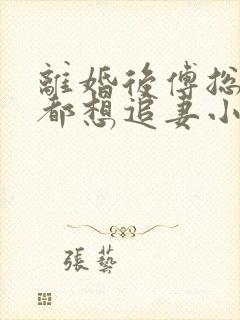 離婚後傅总
都想追妻小
張藝